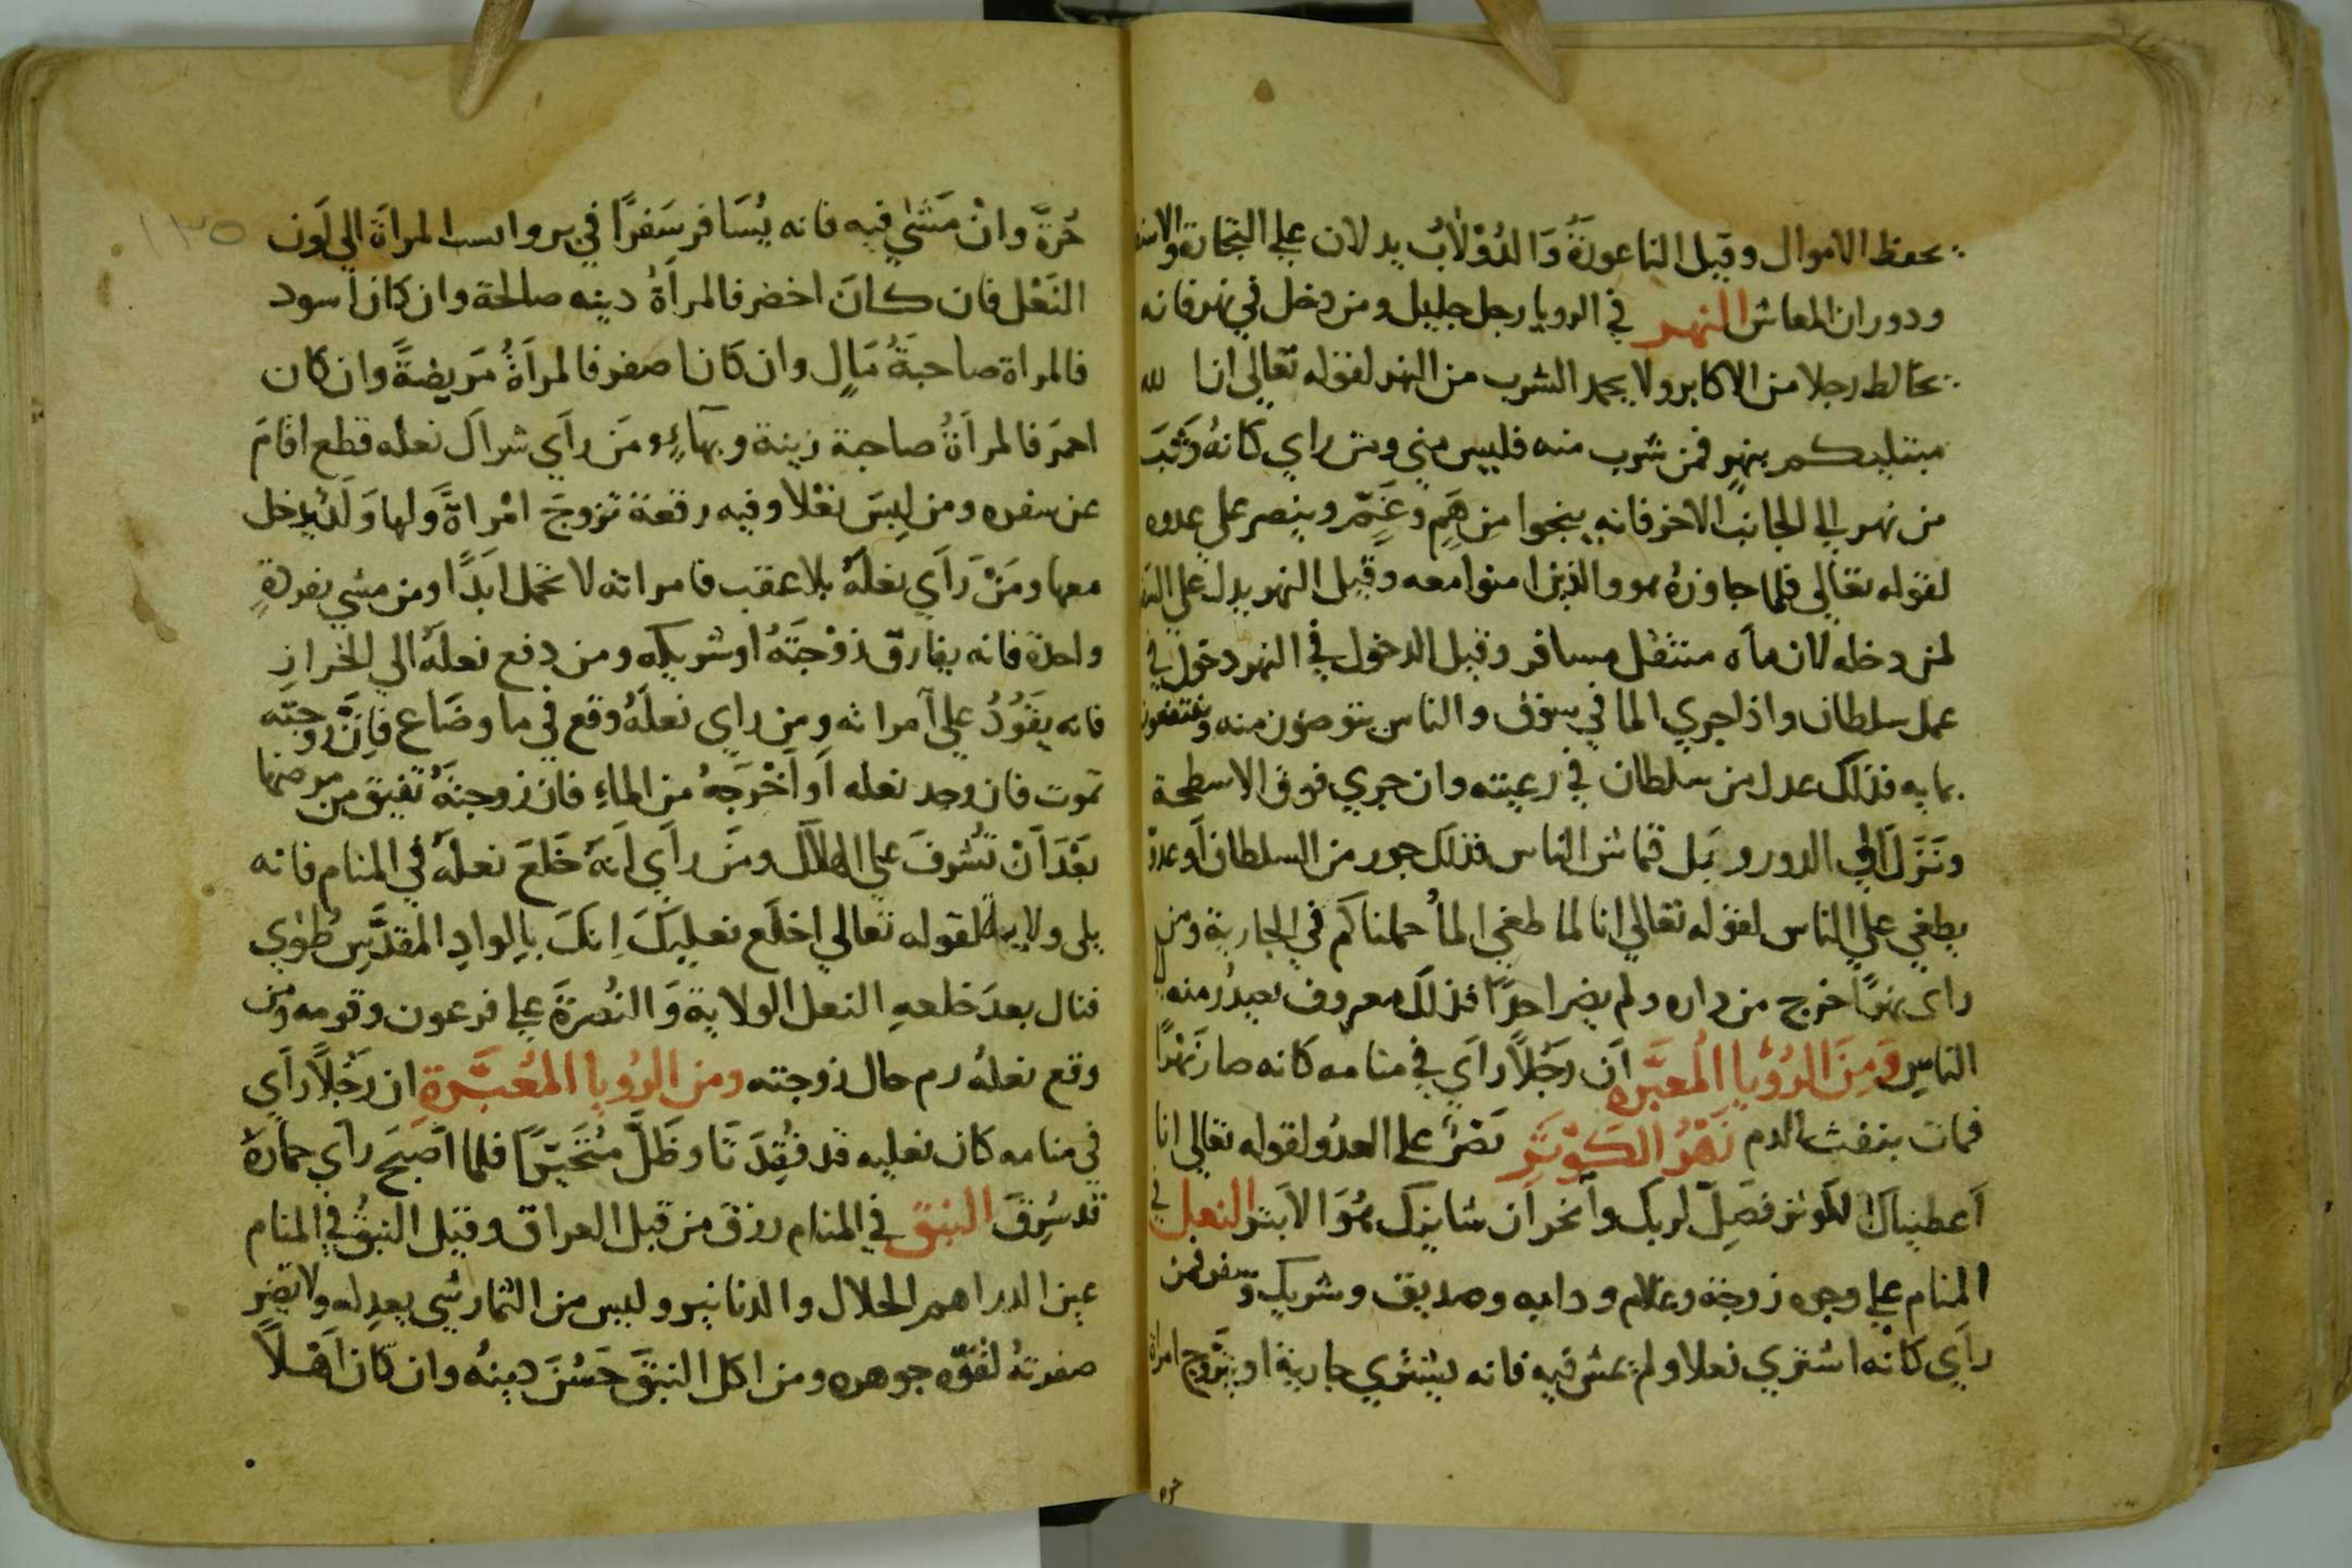 يحفظ الاموال وقيل الناعورة والدولاب يدلان على التجارة
ودوران المعاش النهر في الرويا رجل جليل ومن دخل في نهر فانه
يخالط رجلا من الاكابر ولا يحمد الشرب من النهر لقوله تعالى ان الله
مبتليكم بنهر فمن شرب منه فليس مني ومن راي كانه وثب
من نهر الى الجانب الاخر فانه ينجوا من هم وغم وينصر على عدوه
لقوله تعالى فلما جاوزه هو والذين امنوا معه وقيل النهر يدل على
لمن دخله لان ماه متنقل مسافر وقيل الدخول في النهر دخول في
عمل سلطان واذا جري الما في سوق والناس يتوضون منه وينتفعون
بمايه فذلك عدل من سلطان في رعيته وان جري فوق الاسطحة
ونزل الي الدور وبل قماش الناس فذلك جور من السلطان او عدو
يطغي على الناس لقوله تعالي انا لما طغي الما حملناكم في الجارية ومن
راى نهرا خرج من داره ولم يضر احدا فذلك معروف يصدر منه الي
الناس ومن الرؤيا المعبره ان رجلا راي في منامه كانه صار نهرا
فمات بنفث الدم نهر الكوثر نصر على العدو لقوله تعالى انا
اعطيناك الكوثر فصل لربك وانحر ان شانيك هو الابتر النعل في
المنام على وجوه زوجة وغلام ودابه وصديق وشريك وسفر فمن
رآي كانه اشتري نعلا ولم يمش فيه فانه يشتري جارية او يتزوج امراة
حره
١٣٥
حرة وان مشى فيه فانه يسافر سفرا في بر وانسب المراة الي لون
النعل فان كان اخضر فالمراة دينه صالحة وان كان اسود
فالمراة صاحبة مال وان كان اصفر فالمراة مريضة وان كان
احمر فالمراة صاحبة زينة وبهاء ومن راي شراك نعله قطع اقام
عن سفره ومن لبس نعلا وفيه رقعة تزوج امراة ولها ولد يدخل
معها ومن راي نعله بلا عقب فامراته لا تحمل ابدا ومن مشي بفردة
واحدة فانه يفارق زوجته او شريكه ومن دفع نعله الي الخراز
فانه يقود علي امراته ومن راي نعله وقع في ما وضاع فان زوجته
تموت فان وجد نعله او اخرجه من الماء فان زوجته تفيق من مرضها
بعد ان تشرف علي الهلاك ومن راي انه خلع نعله في المنام فانه
يلى ولاية لقوله تعالي اخلع نعليك انك بالواد المقدس طوي
فنال بعد خلعه النعل الولاية والنصرة علي فرعون وقومه ومن
رقع نعله رم حال زوجته ومن الرويا المعبرة ان رجلا راي
في منامه كان نعليه قد فقدتا وظل متحيرا فلما اصبح راي حماره
قد سرق النبق في المنام رزق من قبل العراق وقيل النبق في المنام
عين الدراهم الحلال والدنانير وليس من الثمار شي يعدله ولا تضر
صفرته لقوه جوهره ومن اكل النبق حسن دينه وان كان اهلا